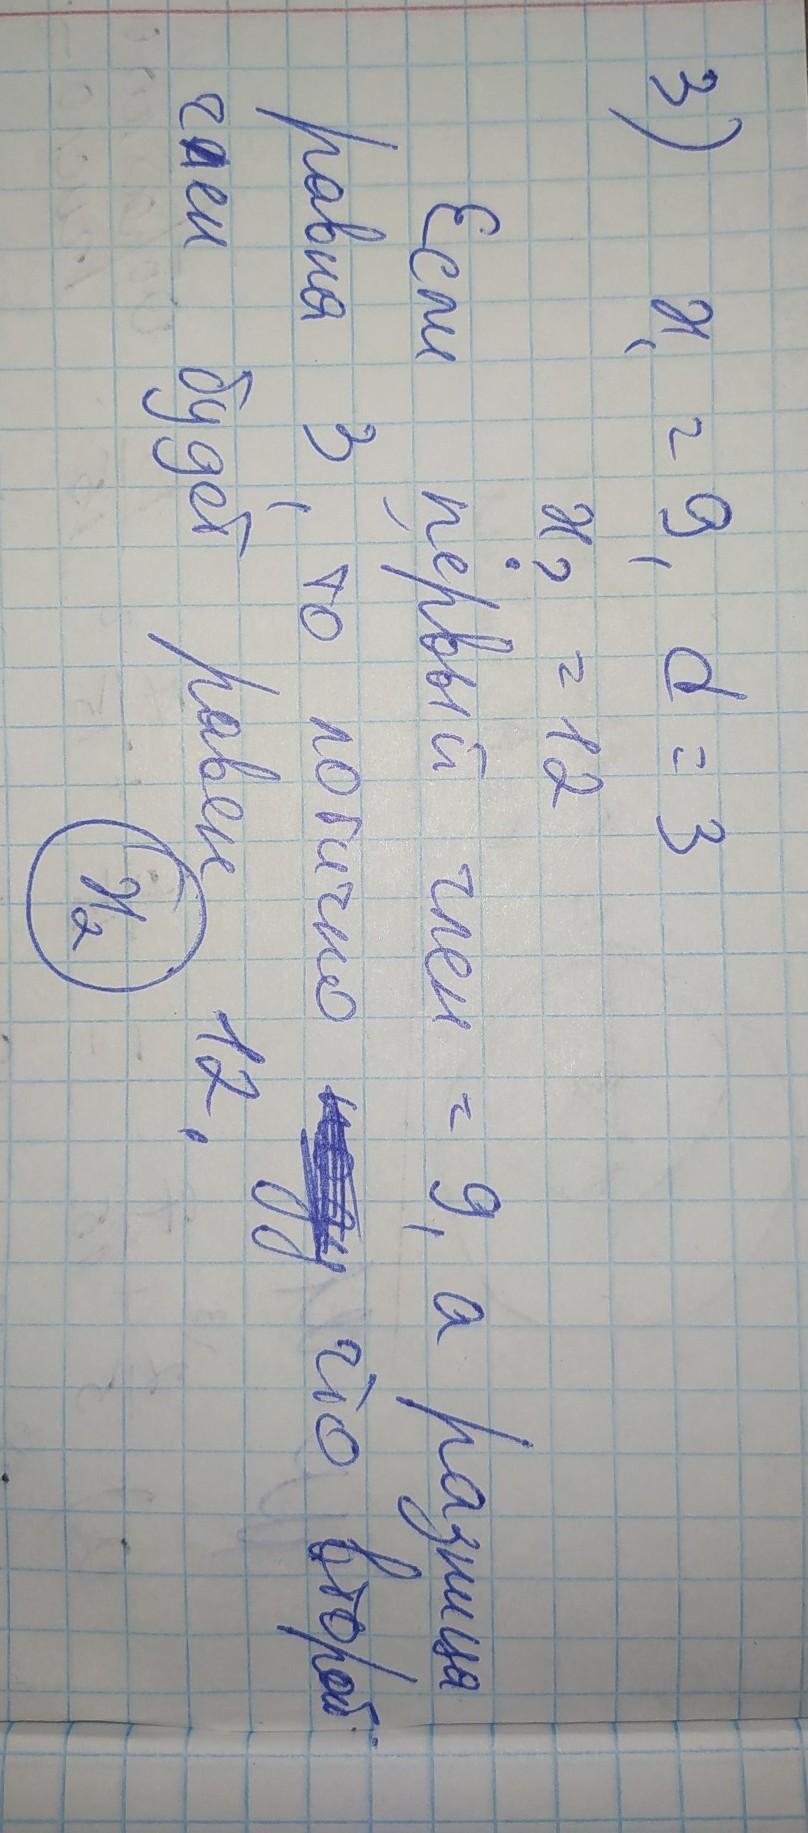 3) x₁ = 9, d = 3
x? = 12
Если первый член = 9, а разница
равна 3, то логично что второй
член будет равен 12,
x₂